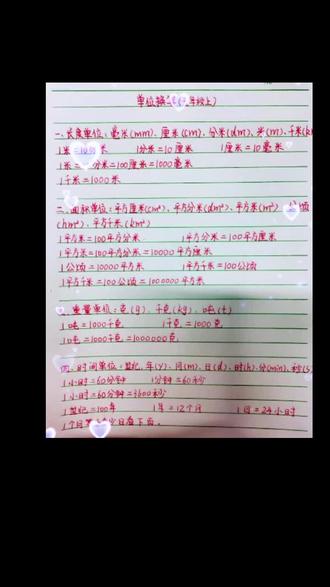 单位换 年级上)
一、长度单位:毫米(mm)、厘米(cm)、分米(dm)、米(m)、千米(k
1米=10分米 1分米=10厘米 1厘米=10毫米
1米= 分米=100厘米=1000毫米
1千米=1000米
二、面积单位:平方厘米(cm²)、平方分米(dm²)、平方米(m²)、公顷
(hm²)、平方千米(km²)
1平方米=100平方分米 1平方分米=100平方厘米
1平方米=100平方分米=10000平方厘米
1公顷=10000平方米 1平方千米=100公顷
1平方千米=100公顷=1000000平方米
、重量单位:克(g)、千克(kg)、吨(t)
1吨=1000千克 1千克=1000克
1吨=1000千克=1000000克
四、时间单位:世纪、年(y)、月(m)、日(d)、时(h)、分(min)、秒(s
1小时=60分钟 1分钟=60秒
1小时=60分钟=3600秒
1世纪=100年 1年=12个月 1日=24小时
1个月 少日看下面。